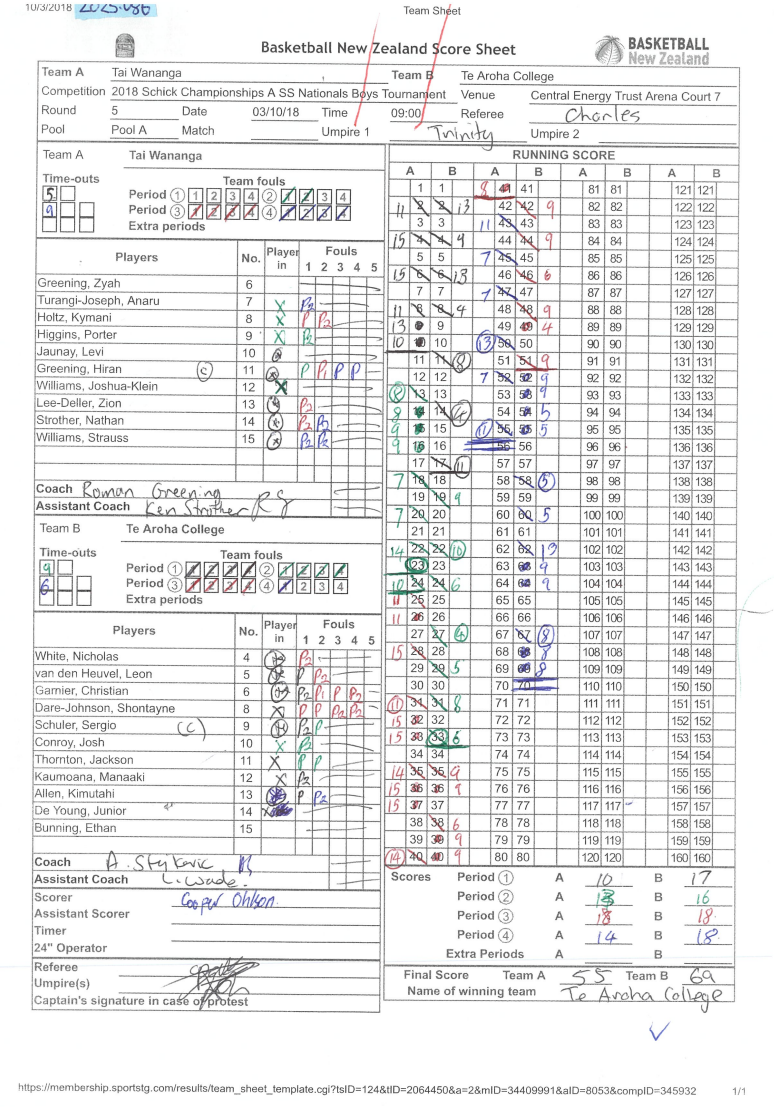 10/3/2018 2025.086 Team Sheet
Basketball New Zealand Score Sheet
BASKETBALL
New Zealand
Team A Tai Wananga Team B Te Aroha College
Competition 2018 Schick Championships A SS Nationals Boys Tournament Venue Central Energy Trust Arena Court 7
Round 5 Date 03/10/18 Time 09:00 Referee Charles
Pool Pool A Match Umpire 1 Trinity Umpire 2
Team A Tai Wananga
Time-outs Team fouls
5 Period 1 1 2 3 4 2 1 2 3 4
9 Period 3 1 2 3 4 4 1 2 3 4
Extra periods
Players No. Player in Fouls
1 2 3 4 5
Greening, Zyah 6
Turangi-Joseph, Anaru 7 X P2
Holtz, Kymani 8 X P P2
Higgins, Porter 9 X P2
Jaunay, Levi 10 X
Greening, Hiran C 11 X P P1 P P
Williams, Joshua-Klein 12 X
Lee-Deller, Zion 13 X P2
Strother, Nathan 14 X P2 P2
Williams, Strauss 15 X P2 P2
Coach Roman Greening
Assistant Coach Ken Strother RG
Team B Te Aroha College
Time-outs Team fouls
9 Period 1 1 2 3 4 2 1 2 3 4
6 Period 3 1 2 3 4 4 1 2 3 4
Extra periods
Players No. Player in Fouls
1 2 3 4 5
White, Nicholas 4 X P2
van den Heuvel, Leon 5 X P P2
Garnier, Christian 6 X P2 P1 P P2
Dare-Johnson, Shontayne 8 X P P P2 P2
Schuler, Sergio (C) 9 X P2 P
Conroy, Josh 10 X P2
Thornton, Jackson 11 X P P
Kaumoana, Manaaki 12 X P2
Allen, Kimutahi 13 P P2
De Young, Junior 14 X
Bunning, Ethan 15
Coach A. Stykovic
Assistant Coach L. Wade.
Scorer Cooper Ohlson
Assistant Scorer
Timer
24" Operator
Referee
Umpire(s)
Captain's signature in case of protest
RUNNING SCORE
A B A B A B A B
1 1 8 41 41 81 81 121 121
11 2 2 13 42 42 9 82 82 122 122
3 3 11 43 43 83 83 123 123
15 4 4 9 44 44 9 84 84 124 124
5 5 7 45 45 85 85 125 125
15 6 6 13 46 46 6 86 86 126 126
7 7 7 47 47 87 87 127 127
11 8 8 4 48 48 9 88 88 128 128
13 9 9 49 49 4 89 89 129 129
10 10 10 13 50 50 90 90 130 130
11 11 8 51 51 9 91 91 131 131
12 12 7 52 52 9 92 92 132 132
8 13 13 53 53 9 93 93 133 133
8 14 14 4 54 54 5 94 94 134 134
9 15 15 11 55 55 5 95 95 135 135
9 16 16 56 56 96 96 136 136
17 17 11 57 57 97 97 137 137
7 18 18 58 58 5 98 98 138 138
19 19 9 59 59 99 99 139 139
7 20 20 60 60 5 100 100 140 140
21 21 61 61 101 101 141 141
14 22 22 10 62 62 13 102 102 142 142
23 23 63 63 9 103 103 143 143
10 24 24 6 64 64 9 104 104 144 144
11 25 25 65 65 105 105 145 145
11 26 26 66 66 106 106 146 146
27 27 4 67 67 8 107 107 147 147
15 28 28 68 68 8 108 108 148 148
29 29 5 69 69 8 109 109 149 149
30 30 70 70 110 110 150 150
11 31 31 8 71 71 111 111 151 151
15 32 32 72 72 112 112 152 152
15 33 33 6 73 73 113 113 153 153
34 34 74 74 114 114 154 154
14 35 35 9 75 75 115 115 155 155
15 36 36 9 76 76 116 116 156 156
15 37 37 77 77 117 117 157 157
38 38 6 78 78 118 118 158 158
39 39 9 79 79 119 119 159 159
14 40 40 9 80 80 120 120 160 160
Scores Period 1 A 10 B 17
Period 2 A 13 B 16
Period 3 A 18 B 18
Period 4 A 14 B 18
Extra Periods A B
Final Score Team A 55 Team B 69
Name of winning team Te Aroha College
https://membership.sportstg.com/results/team_sheet_template.cgi?tsID=124&tID=2064450&a=2&mID=34409991&aID=8053&compID=345932 1/1